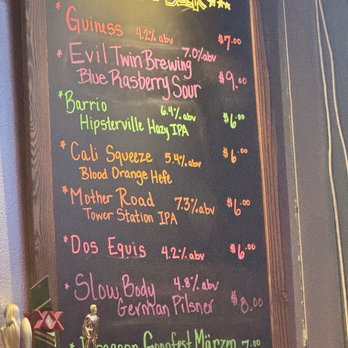 * Guiness 4.2% abv $7.00
* Evil Twin Brewing 7.0% abv
Blue Rasberry Sour $9.00
* Barrio 6.4% abv
Hipsterville Hazy IPA $6.00
* Cali Squeeze 5.4% abv $6.00
Blood Orange Hefe
* Mother Road 7.3% abv $6.00
Tower Station IPA
* Dos Equis 4.2% abv $6.00
* Slow Body 4.8% abv
German Pilsner $8.00
Gonnfest Märzen 7.00
XX